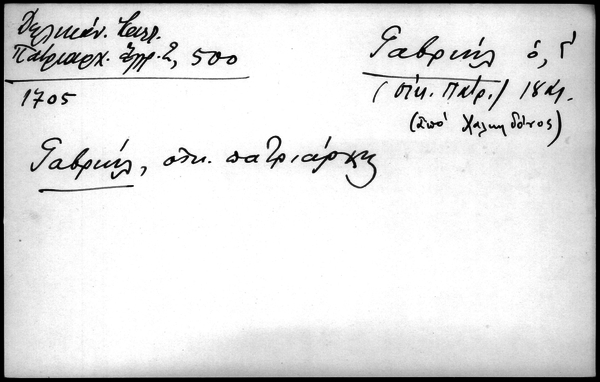 Δελικάν. Καλλ.
Πατριαρχ. Ἔγγρ. Γ, 500
1705
Γαβριήλ ὁ, Γ΄
(οἰκ. Πατρ.) 18 αἰ.
(ἀπό Χαλκηδόνος)
Γαβριήλ, οἰκ. πατριάρχης